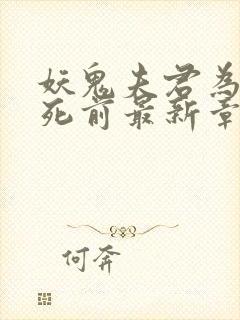 妖鬼夫君為
死前最新章
何奔